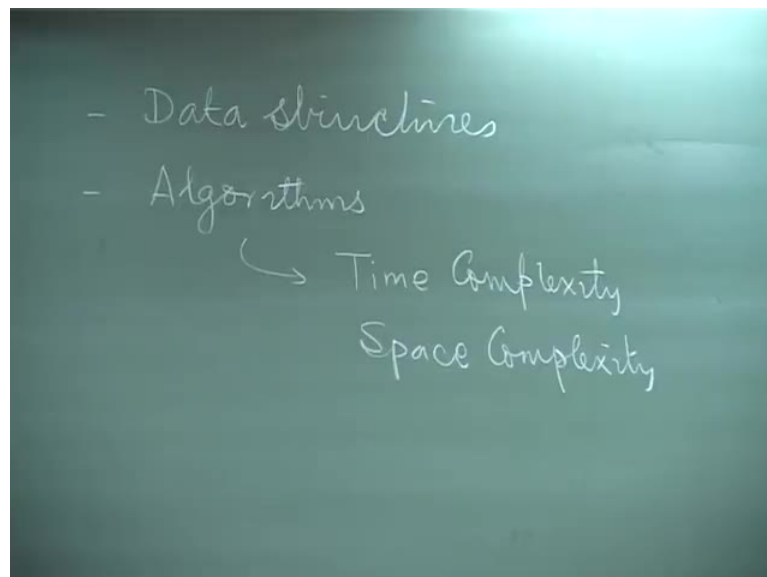 - Data structures
- Algorithms
Time Complexity
Space Complexity